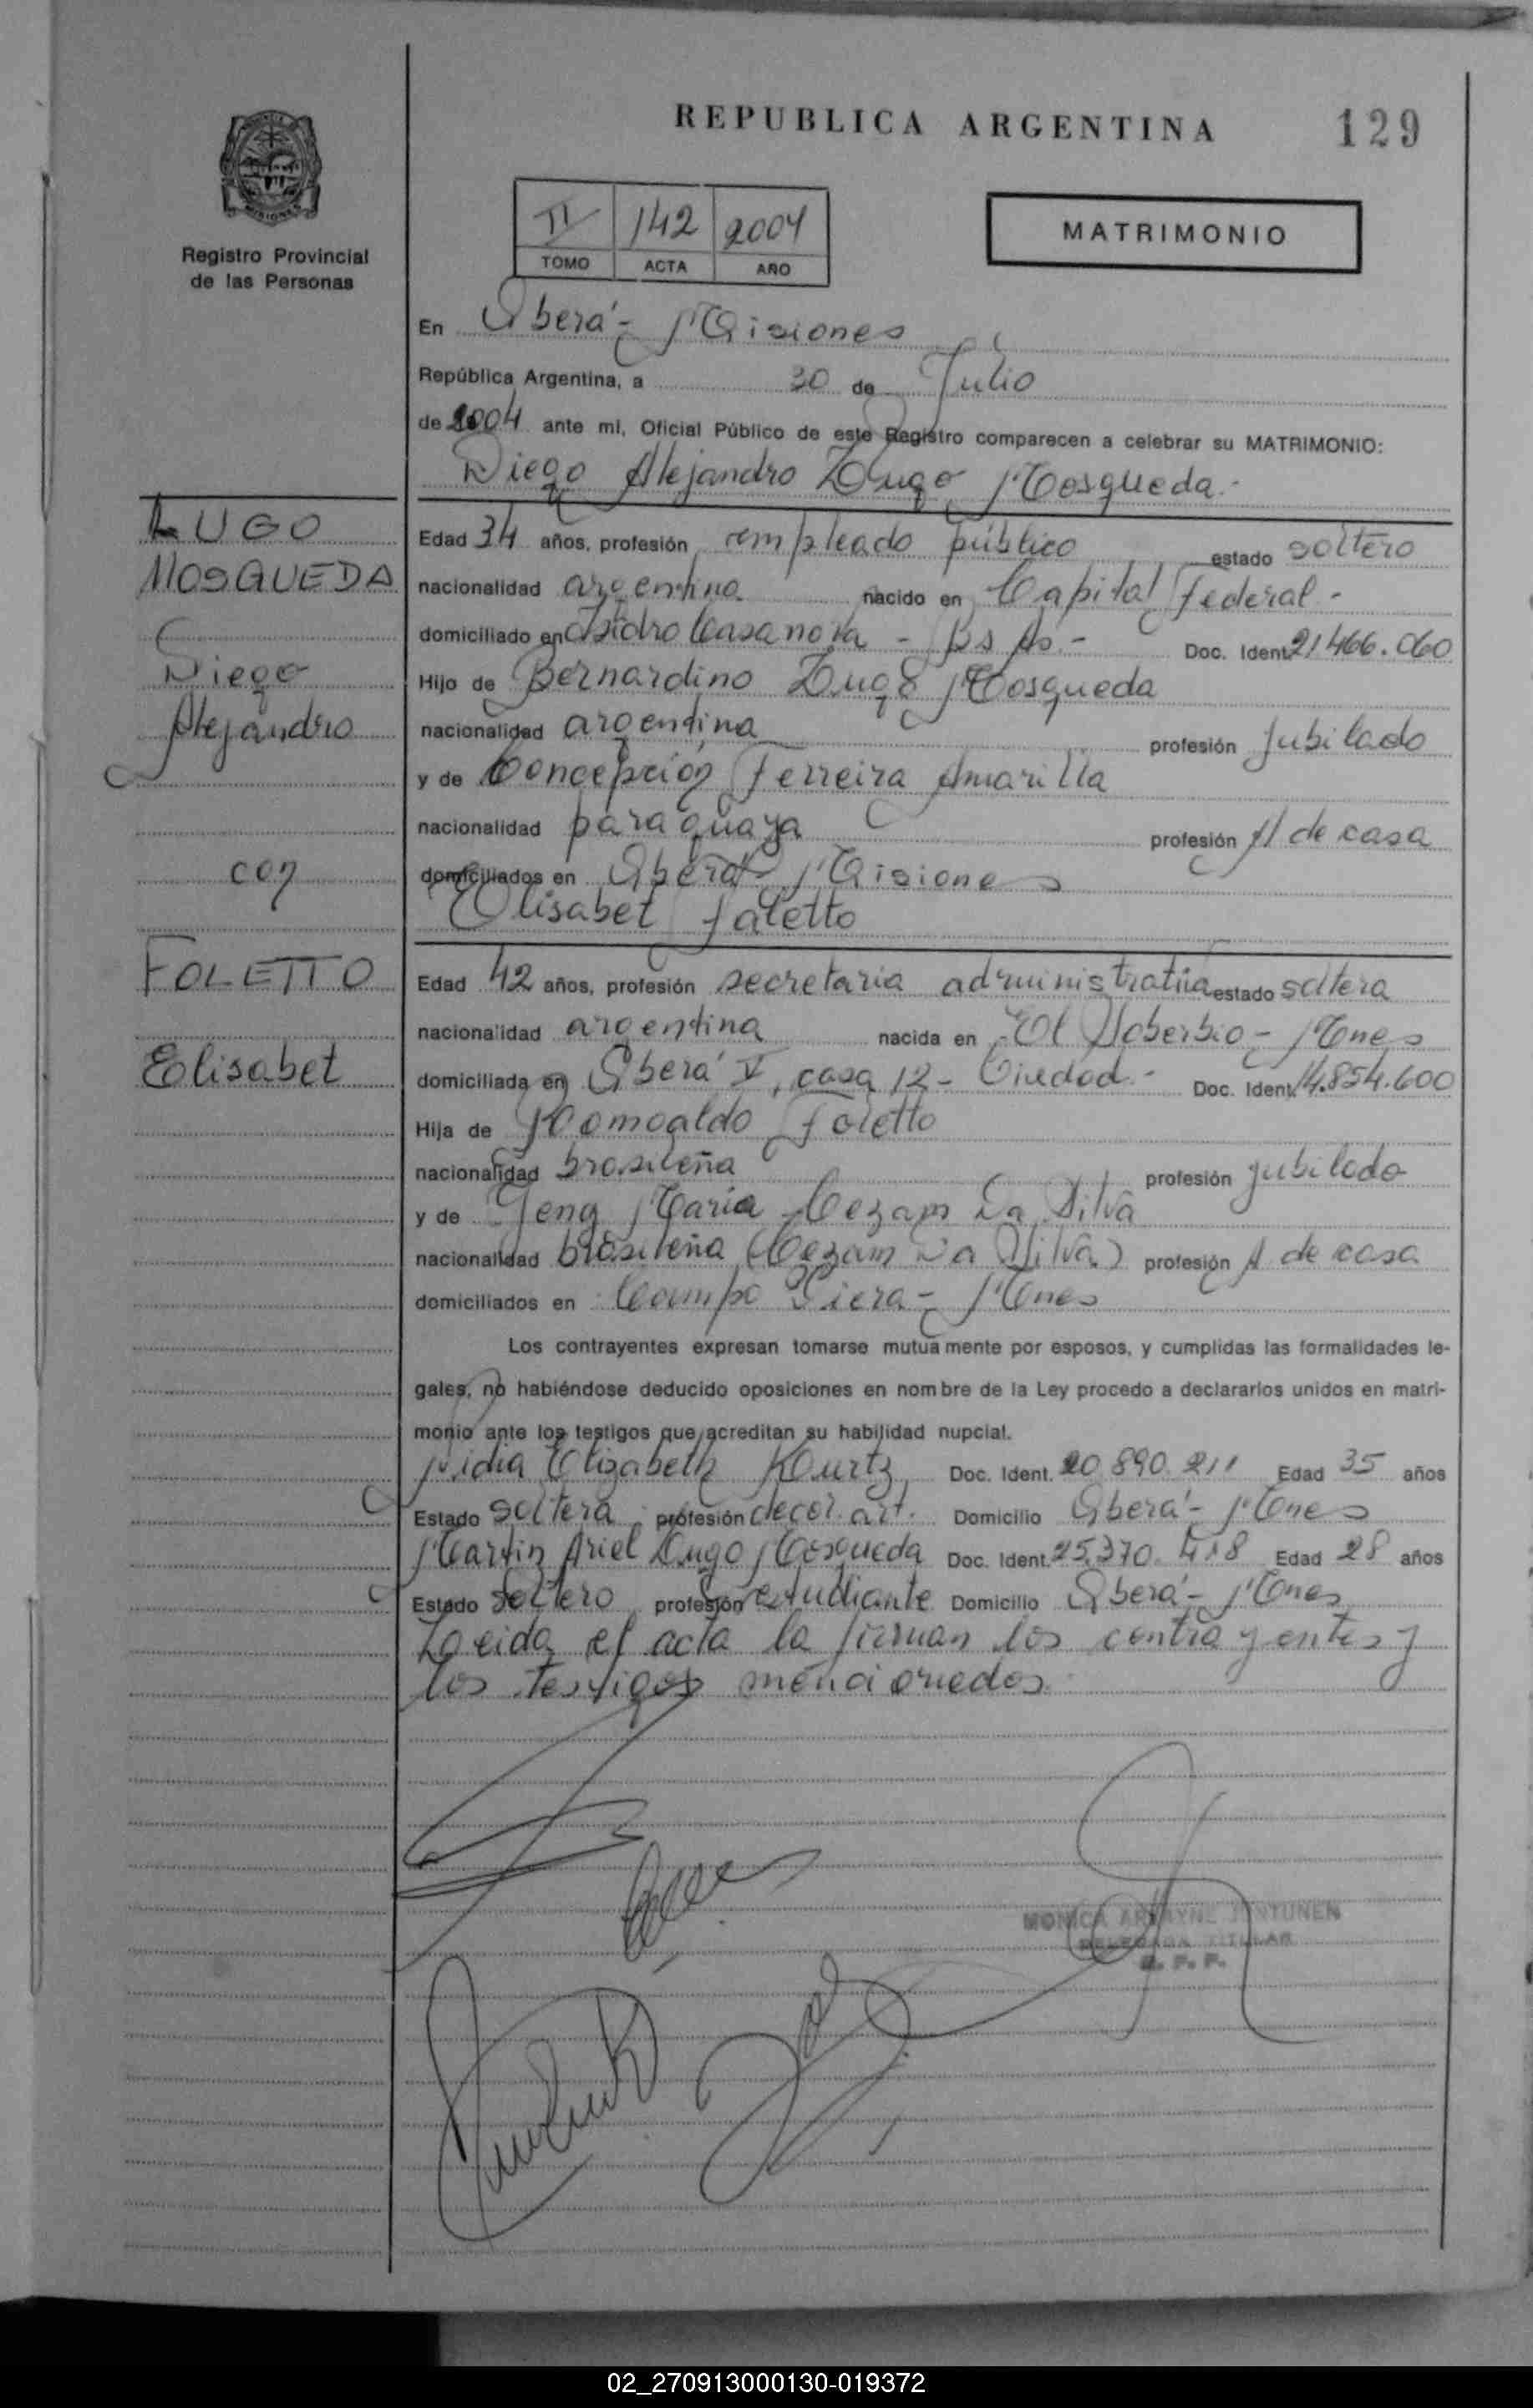 REPUBLICA ARGENTINA
129
Registro Provincial
de las Personas
II 142 2004
TOMO ACTA AÑO
MATRIMONIO
En Oberá - Misiones
República Argentina, a 30 de Julio
de 2004 ante mí, Oficial Público de este Registro comparecen a celebrar su MATRIMONIO:
Diego Alejandro Lugo Mosqueda.-
LUGO
MOSQUEDA
Diego
Alejandro
con
FOLETTO
Elisabet
Edad 34 años, profesión empleado público estado soltero
nacionalidad argentina nacido en Capital Federal.-
domiciliado en Isidro Casanova - Bs As.- Doc. Ident. 21.466.060
Hijo de Bernardino Lugo Mosqueda
nacionalidad argentina profesión Jubilado
y de Concepción Ferreira Amarilla
nacionalidad paraguaya profesión A de casa
domiciliados en Oberá - Misiones
Elisabet Foletto
Edad 42 años, profesión secretaria administrativa estado soltera
nacionalidad argentina nacida en El Soberbio - Mnes
domiciliada en Oberá V, casa 12 - Ciudad.- Doc. Ident. 14.854.600
Hija de Romoaldo Foletto
nacionalidad brasileña profesión jubilado
y de Maria Cezam Da Silva
nacionalidad brasileña (Cezam Da Silva) profesión A de casa
domiciliados en Campo Viera - Mnes
Los contrayentes expresan tomarse mutuamente por esposos, y cumplidas las formalidades le-
gales, no habiéndose deducido oposiciones en nombre de la Ley procedo a declararlos unidos en matri-
monio ante los testigos que acreditan su habilidad nupcial.
Nidia Elizabeth Kurtz Doc. Ident. 20.890.211 Edad 35 años
Estado soltera profesión decor. art. Domicilio Oberá - Mnes
Martin Ariel Lugo Mosqueda Doc. Ident. 25.370.418 Edad 28 años
Estado soltero profesión estudiante Domicilio Oberá - Mnes
Leída el acta la firman los contrayentes y
los testigos mencionados.
MONICA JUNTUNEN
DELEGADA TITULAR
R. P. P.
02_270913000130-019372